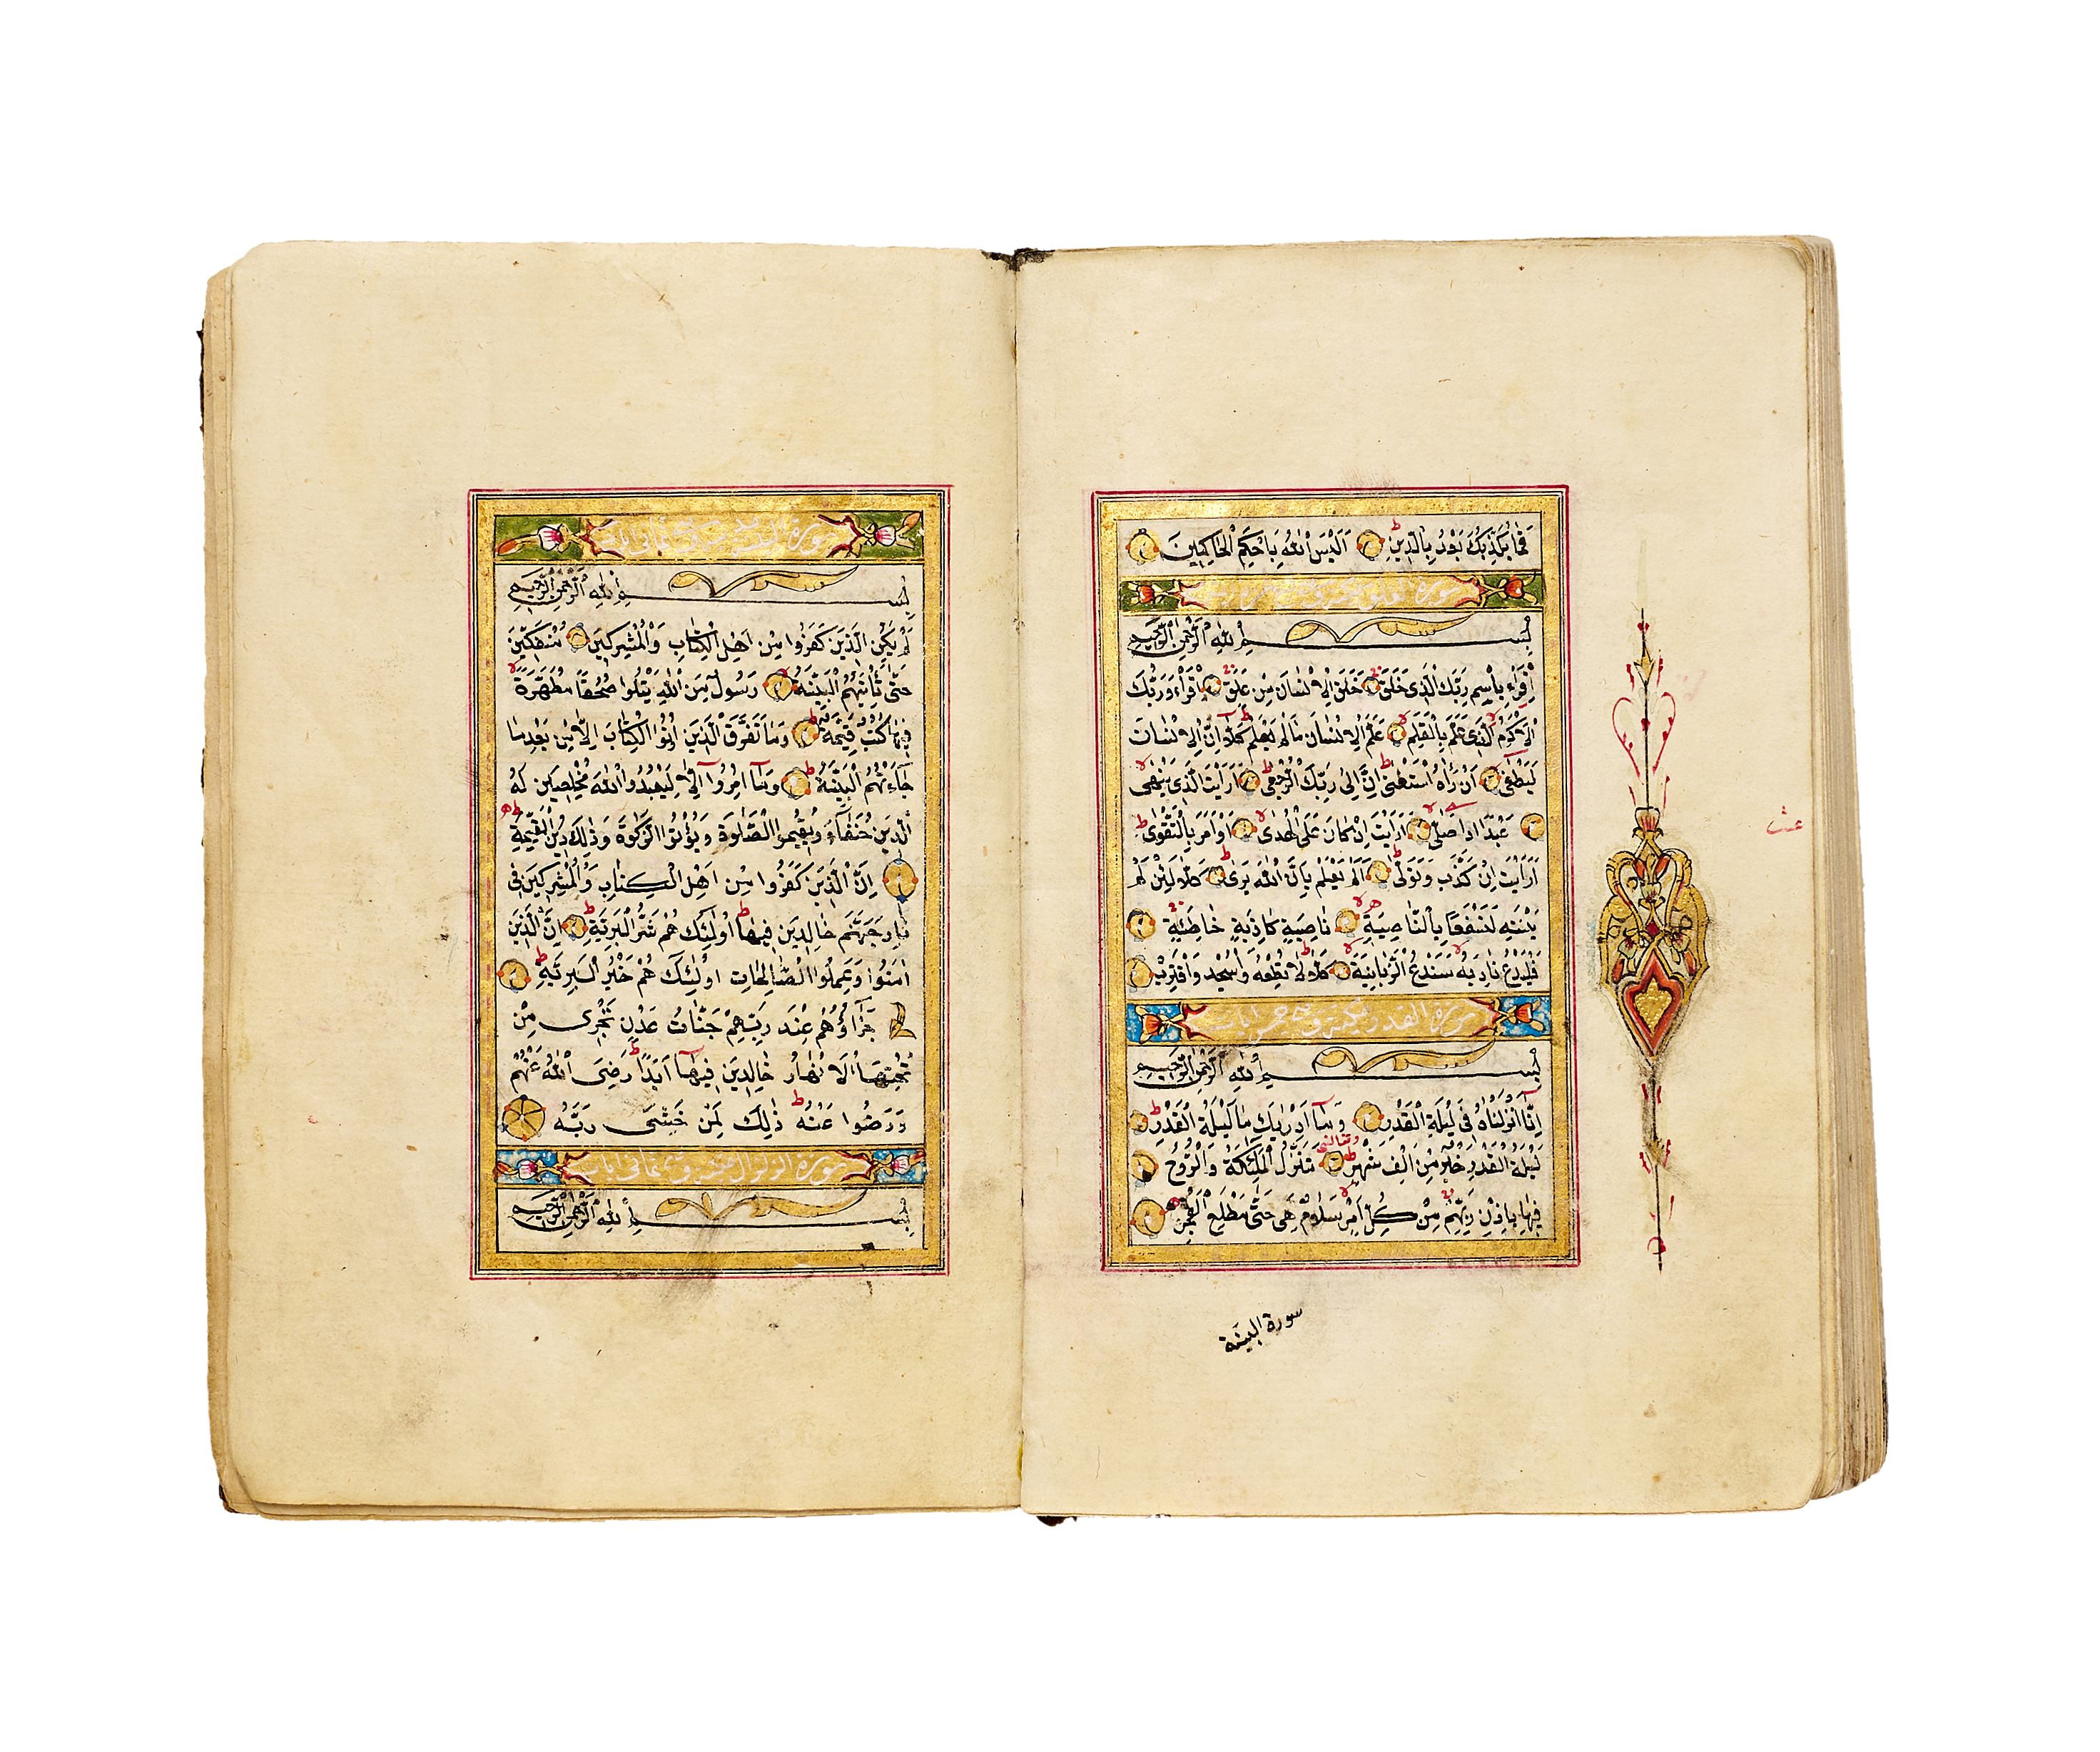 فَمَا يُكَذِّبُكَ بَعْدُ بِالدِّينِ اَلَيْسَ اللّٰهُ بِاَحْكَمِ الْحَاكِمِينَ
سورة العلق
بِسْمِ اللّٰهِ الرَّحْمٰنِ الرَّحِيمِ
اِقْرَأْ بِاسْمِ رَبِّكَ الَّذِى خَلَقَ خَلَقَ الْاِنْسَانَ مِنْ عَلَقٍ اِقْرَأْ وَرَبُّكَ
الْاَكْرَمُ الَّذِى عَلَّمَ بِالْقَلَمِ عَلَّمَ الْاِنْسَانَ مَا لَمْ يَعْلَمْ كَلَّا اِنَّ الْاِنْسَانَ
لَيَطْغٰى اَنْ رَاٰهُ اسْتَغْنٰى اِنَّ اِلٰى رَبِّكَ الرُّجْعٰى اَرَاَيْتَ الَّذِى يَنْهٰى
عَبْدًا اِذَا صَلّٰى اَرَاَيْتَ اِنْ كَانَ عَلَى الْهُدٰى اَوْ اَمَرَ بِالتَّقْوٰى
اَرَاَيْتَ اِنْ كَذَّبَ وَتَوَلّٰى اَلَمْ يَعْلَمْ بِاَنَّ اللّٰهَ يَرٰى كَلَّا لَئِنْ لَمْ
يَنْتَهِ لَنَسْفَعًا بِالنَّاصِيَةِ نَاصِيَةٍ كَاذِبَةٍ خَاطِئَةٍ
فَلْيَدْعُ نَادِيَهُ سَنَدْعُ الزَّبَانِيَةَ كَلَّا لَا تُطِعْهُ وَاسْجُدْ وَاقْتَرِبْ
سورة القدر مكية وهى خمس ايات
بِسْمِ اللّٰهِ الرَّحْمٰنِ الرَّحِيمِ
اِنَّٓا اَنْزَلْنَاهُ فِى لَيْلَةِ الْقَدْرِ وَمَٓا اَدْرٰيكَ مَا لَيْلَةُ الْقَدْرِ
لَيْلَةُ الْقَدْرِ خَيْرٌ مِنْ اَلْفِ شَهْرٍ تَنَزَّلُ الْمَلٰٓئِكَةُ وَالرُّوحُ
فِيهَا بِاِذْنِ رَبِّهِمْ مِنْ كُلِّ اَمْرٍ سَلَامٌ هِىَ حَتّٰى مَطْلَعِ الْفَجْرِ
سورة البينة
بِسْمِ اللّٰهِ الرَّحْمٰنِ الرَّحِيمِ
لَمْ يَكُنِ الَّذِينَ كَفَرُوا مِنْ اَهْلِ الْكِتَابِ وَالْمُشْرِكِينَ مُنْفَكِّينَ
حَتّٰى تَأْتِيَهُمُ الْبَيِّنَةُ رَسُولٌ مِنَ اللّٰهِ يَتْلُوا صُحُفًا مُطَهَّرَةً
فِيهَا كُتُبٌ قَيِّمَةٌ وَمَا تَفَرَّقَ الَّذِينَ اُوتُوا الْكِتَابَ اِلَّا مِنْ بَعْدِ مَا
جَٓاءَتْهُمُ الْبَيِّنَةُ وَمَٓا اُمِرُٓوا اِلَّا لِيَعْبُدُوا اللّٰهَ مُخْلِصِينَ لَهُ
الدِّينَ حُنَفَٓاءَ وَيُقِيمُوا الصَّلٰوةَ وَيُؤْتُوا الزَّكٰوةَ وَذٰلِكَ دِينُ الْقَيِّمَةِ
اِنَّ الَّذِينَ كَفَرُوا مِنْ اَهْلِ الْكِتَابِ وَالْمُشْرِكِينَ فِى
نَارِ جَهَنَّمَ خَالِدِينَ فِيهَا اُولٰٓئِكَ هُمْ شَرُّ الْبَرِيَّةِ اِنَّ الَّذِينَ
اٰمَنُوا وَعَمِلُوا الصَّالِحَاتِ اُولٰٓئِكَ هُمْ خَيْرُ الْبَرِيَّةِ
جَزَٓاؤُهُمْ عِنْدَ رَبِّهِمْ جَنَّاتُ عَدْنٍ تَجْرِى مِنْ
تَحْتِهَا الْاَنْهَارُ خَالِدِينَ فِيهَٓا اَبَدًا رَضِىَ اللّٰهُ عَنْهُمْ
وَرَضُوا عَنْهُ ذٰلِكَ لِمَنْ خَشِىَ رَبَّهُ
سورة الزلزال وهى ثمانى ايات
بِسْمِ اللّٰهِ الرَّحْمٰنِ الرَّحِيمِ